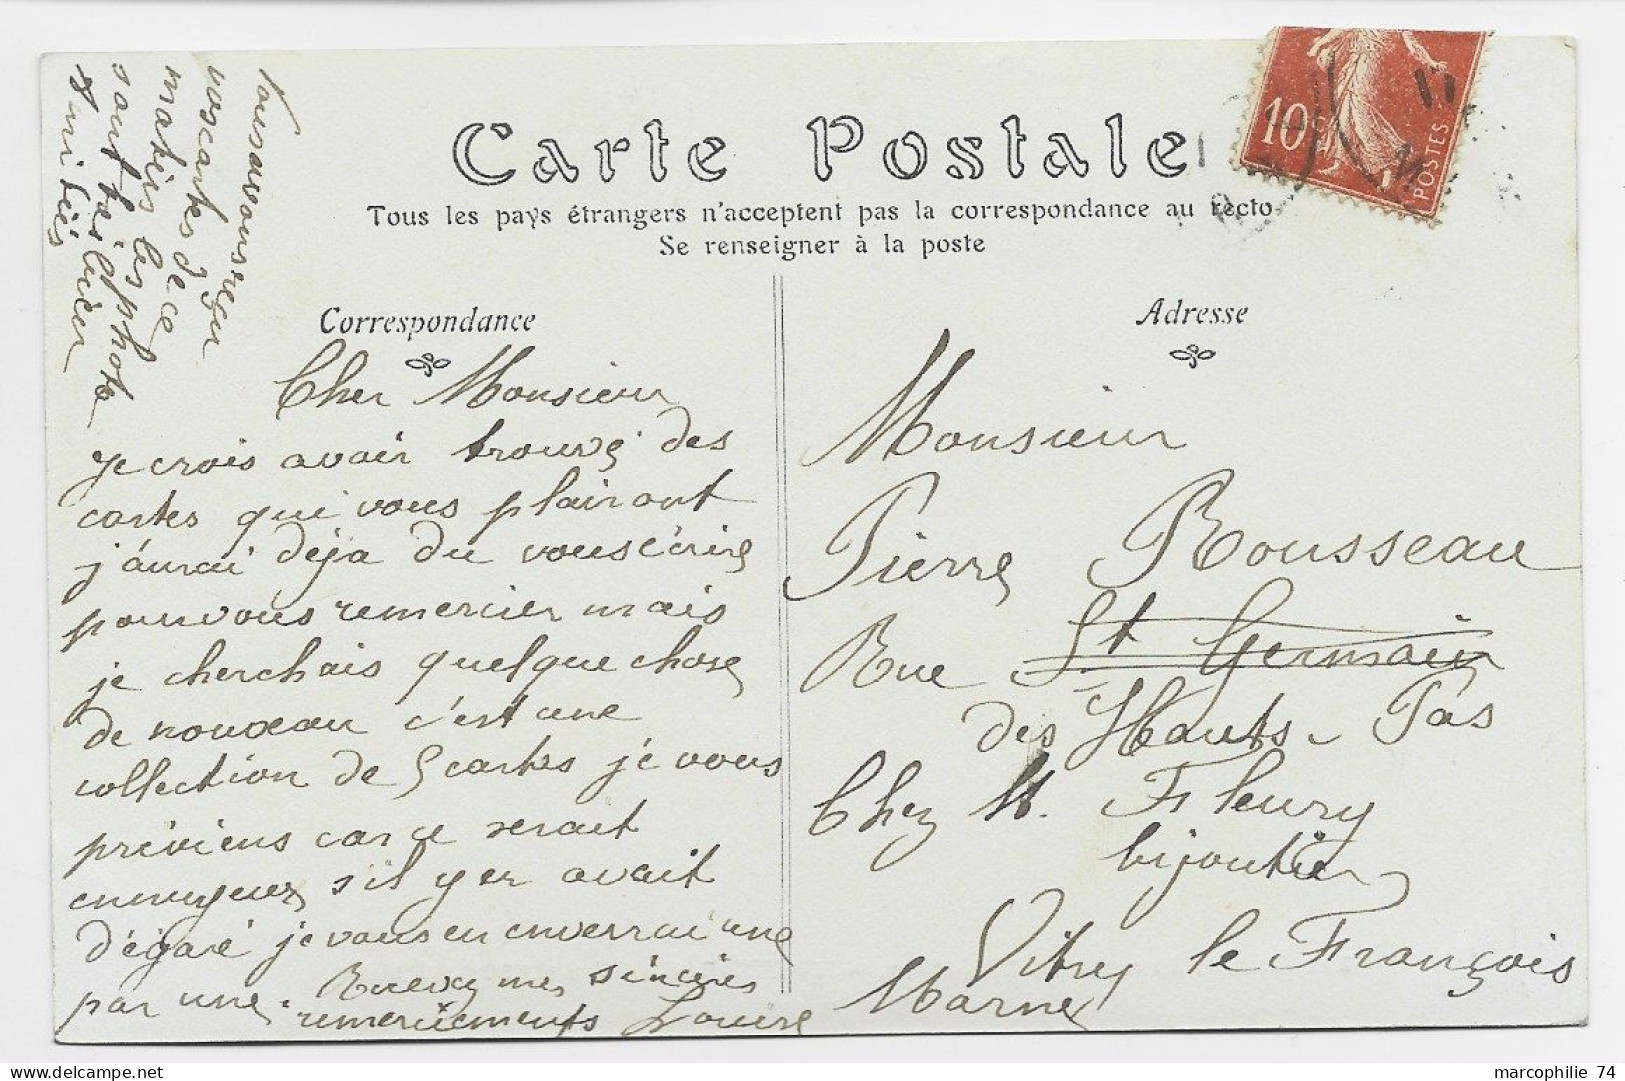 Carte Postale
Tous les pays étrangers n'acceptent pas la correspondance au recto
Se renseigner à la poste
10
POSTES
Correspondance
Cher Monsieur
Je crois avoir trouvé des
cartes qui vous plairont
j'aurai déja du vous écrire
pour vous remercier mais
je cherchais quelque chose
de nouveau c'est une
collection de 5 cartes je vous
préviens car ce serait
ennuyeux s'il y en avait
d'égaré je vous en enverrai une
par une. Recevez mes sincères
remerciements Louise
Nous avons reçu
vos cartes de ce
matin les photo
sont très bien
Amitiés
Adresse
Monsieur
Pierre Rousseau
Rue St Germain
des Hauts-Pas
Chez M. Fleury
bijoutier
Vitry le François
Marne
marcophilie 74